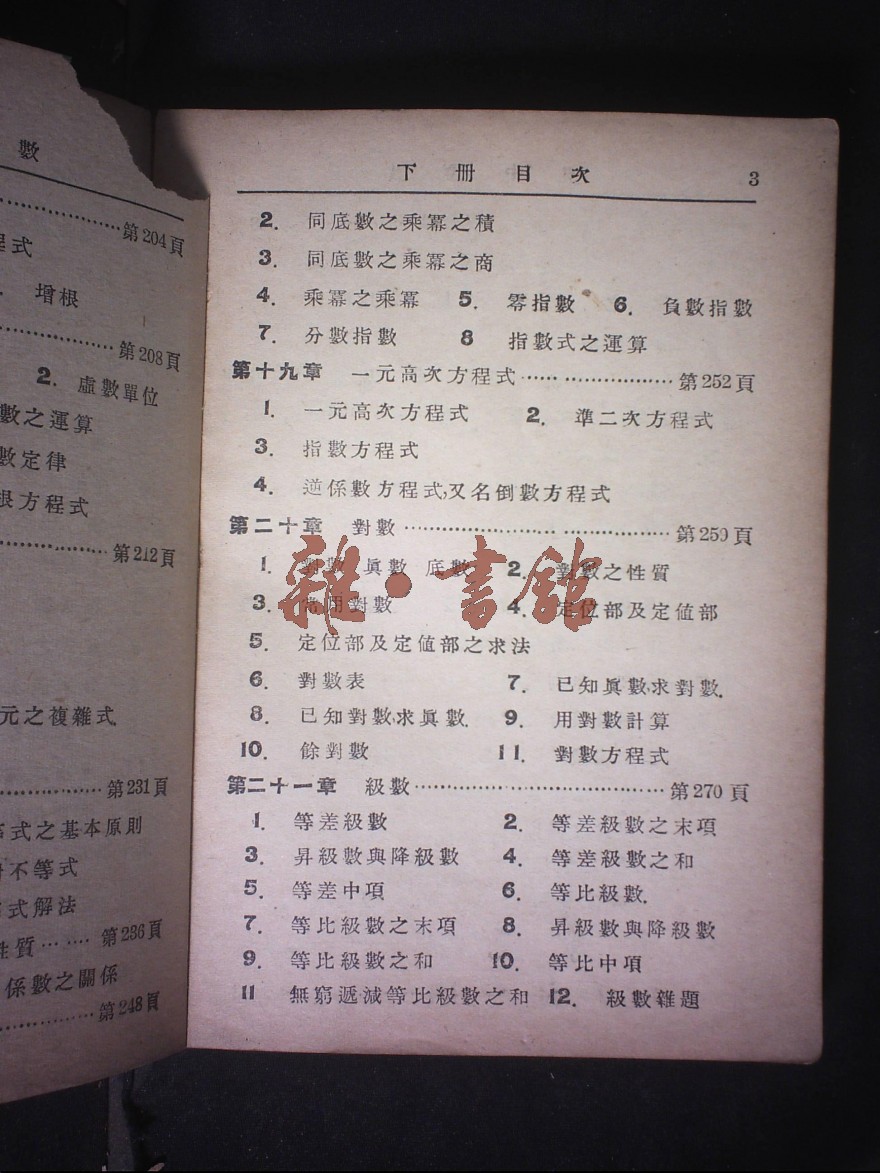 數
第204頁
程式
增根
第208頁
2. 虛數單位
數之運算
數定律
根方程式
第212頁
元之複雜式
第231頁
式之基本原則
不等式
式解法
性質…… 第236頁
係數之關係
第248頁
下冊目次 3
2. 同底數之乘冪之積
3. 同底數之乘冪之商
4. 乘冪之乘冪 5. 零指數 6. 負數指數
7. 分數指數 8 指數式之運算
第十九章 一元高次方程式……………………第252頁
1. 一元高次方程式 2. 準二次方程式
3. 指數方程式
4. 逆係數方程式,又名倒數方程式
第二十章 對數……………………………第259頁
1. 對數 眞數 底數 2. 對數之性質
3. 常用對數 4. 定位部及定値部
5. 定位部及定値部之求法
6. 對數表 7. 已知眞數,求對數.
8. 已知對數,求眞數. 9. 用對數計算
10. 餘對數 11. 對數方程式
第二十一章 級數……………………………第270頁
1. 等差級數 2. 等差級數之末項
3. 昇級數與降級數 4. 等差級數之和
5. 等差中項 6. 等比級數.
7. 等比級數之末項 8. 昇級數與降級數
9. 等比級數之和 10. 等比中項
11 無窮遞減等比級數之和 12. 級數雜題
雜·書館